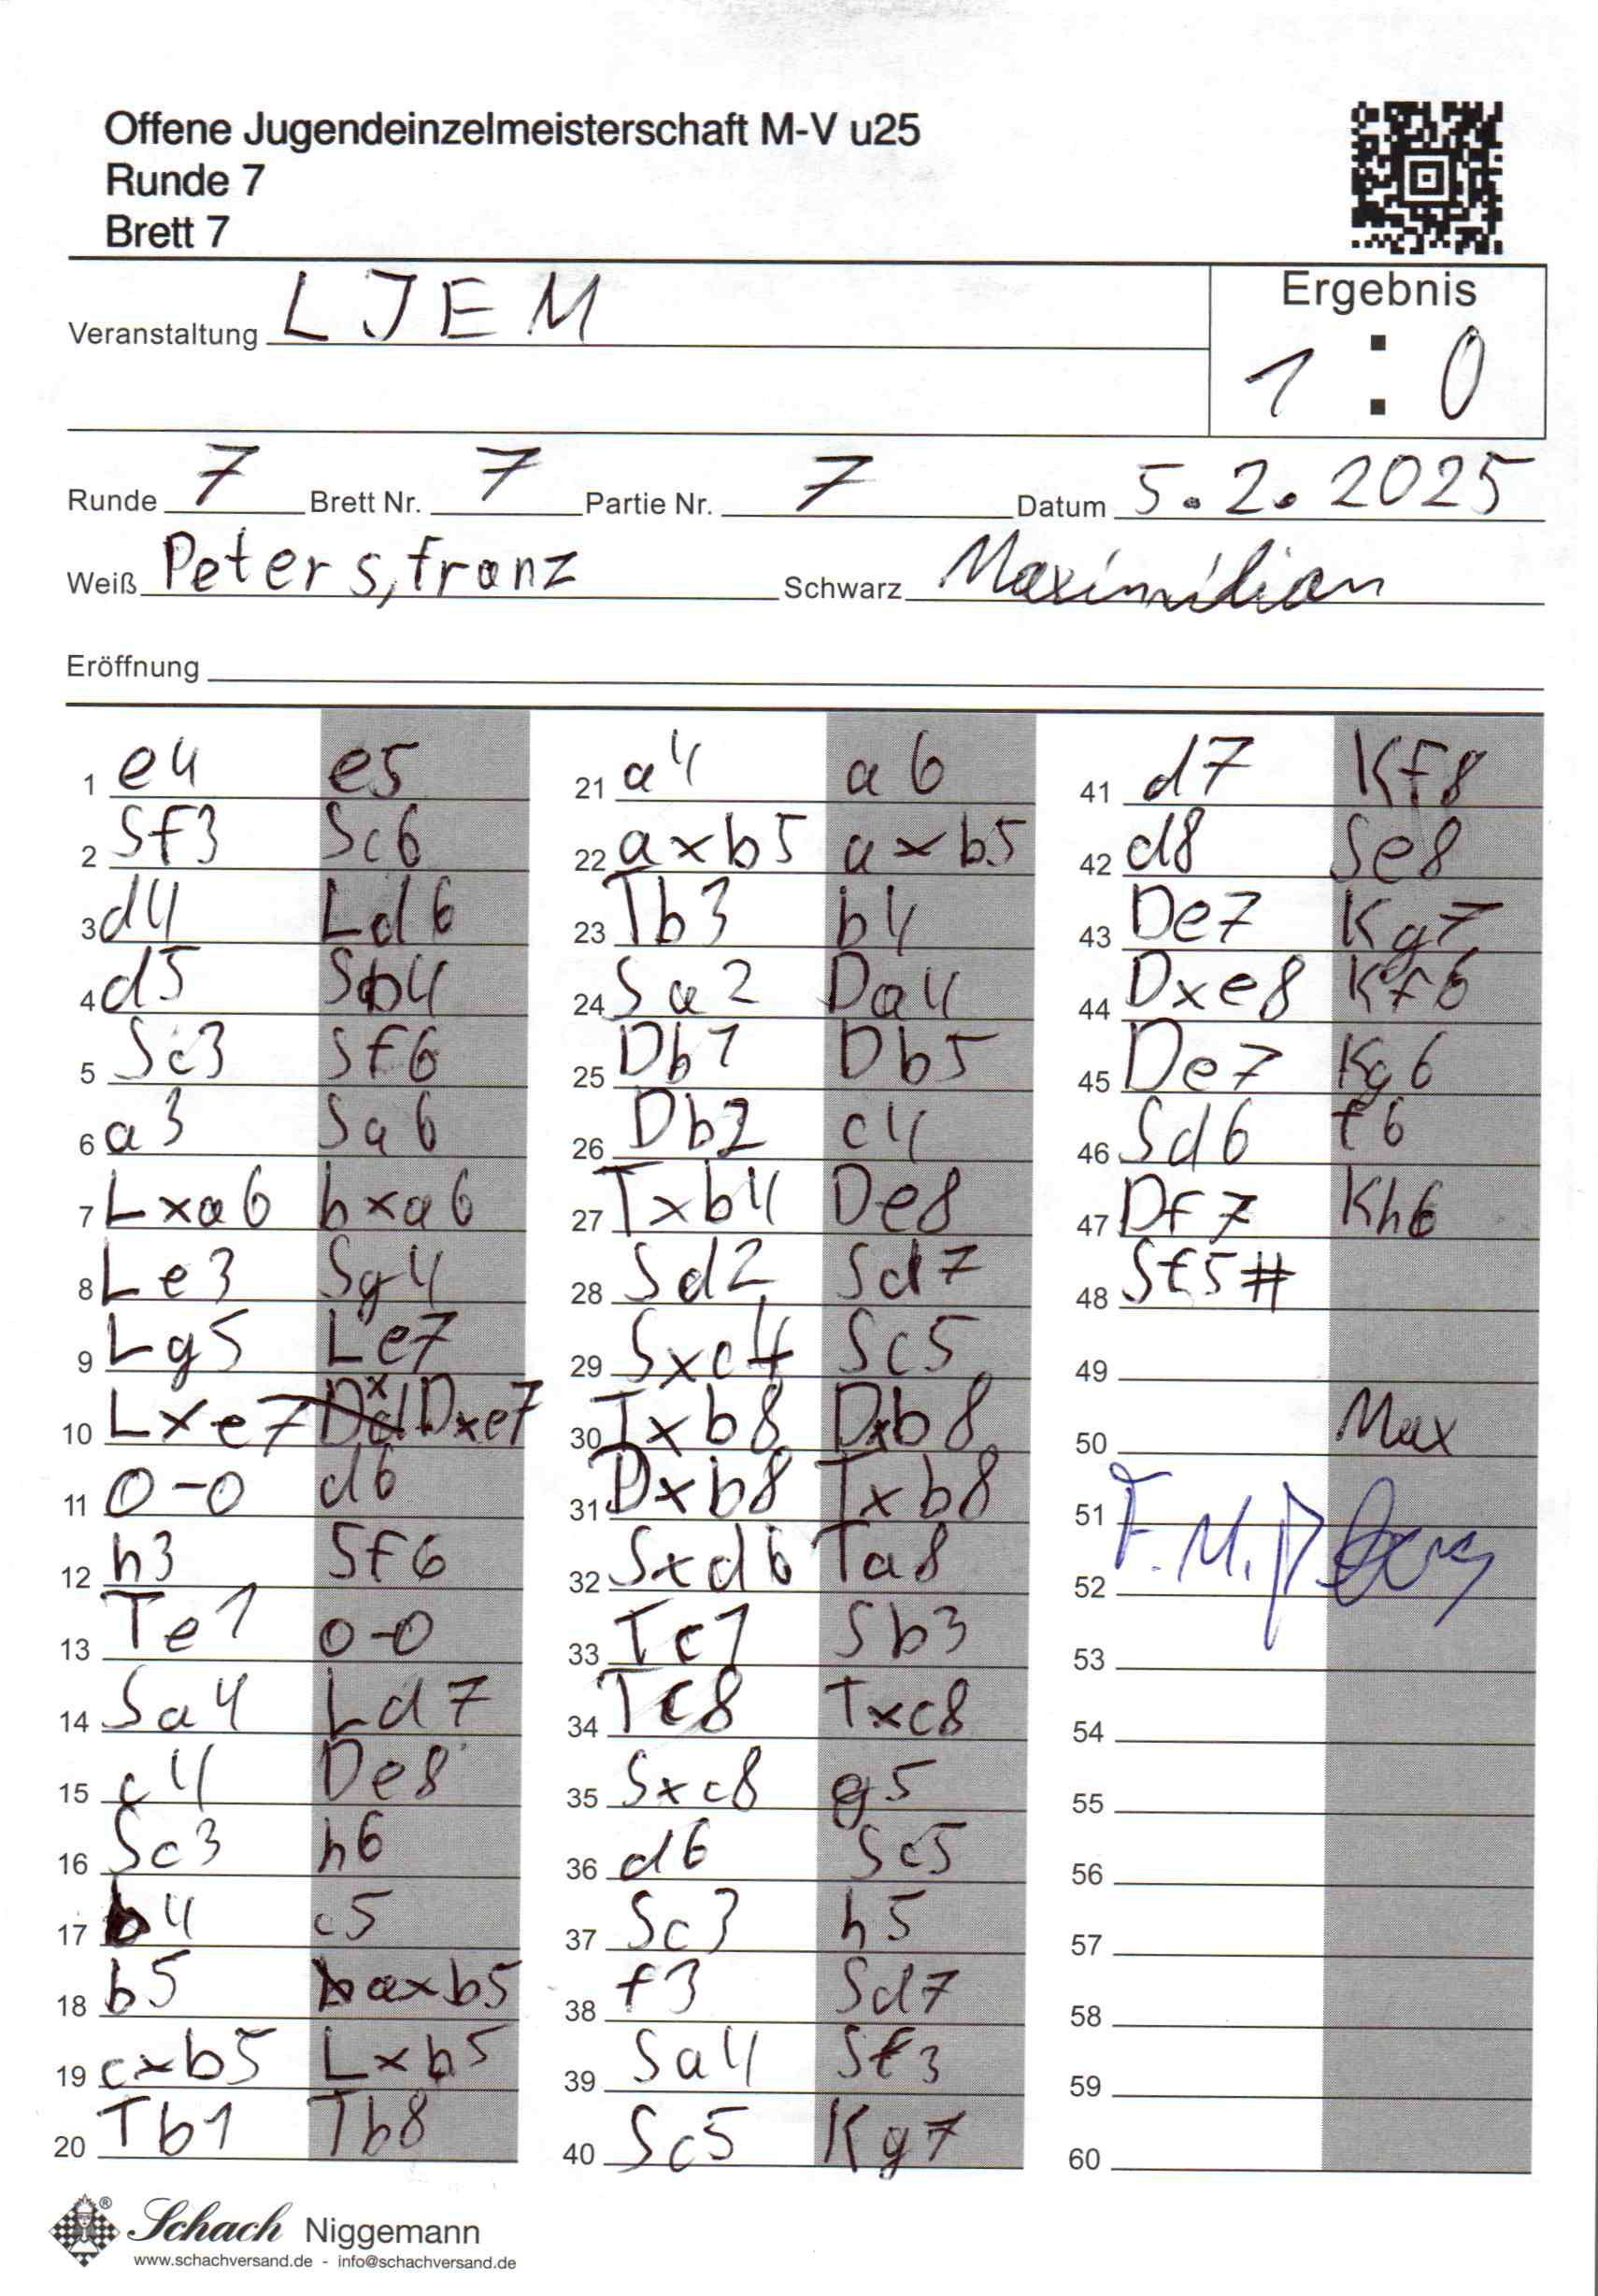 Offene Jugendeinzelmeisterschaft M-V u25
Runde 7
Brett 7
Veranstaltung LJEM
Ergebnis
1 : 0
Runde 7 Brett Nr. 7 Partie Nr. 7 Datum 5.2.2025
Weiß Peters, franz Schwarz Maximilian
Eröffnung
1 e4 e5
2 Sf3 Sc6
3 d4 Ld6
4 d5 Sb4
5 Sc3 Sf6
6 a3 Sa6
7 Lxa6 bxa6
8 Le3 Sg4
9 Lg5 Le7
10 Lxe7 Dxe7
11 0-0 d6
12 h3 Sf6
13 Te1 0-0
14 Sa4 Ld7
15 c4 De8
16 Sc3 h6
17 b4 c5
18 b5 axb5
19 cxb5 Lxb5
20 Tb1 Tb8
21 a4 a6
22 axb5 axb5
23 Tb3 b4
24 Sa2 Da4
25 Db1 Db5
26 Db2 c4
27 Txb4 De8
28 Sd2 Sd7
29 Sxc4 Sc5
30 Txb8 Dxb8
31 Dxb8 Txb8
32 Sxd6 Ta8
33 Tc1 Sb3
34 Tc8 Txc8
35 Sxc8 g5
36 d6 Sc5
37 Sc3 h5
38 f3 Sd7
39 Sa4 Sf3
40 Sc5 Kg7
41 d7 Kf8
42 d8 Se8
43 De7 Kg7
44 Dxe8 Kf6
45 De7 Kg6
46 Sd6 f6
47 Df7 Kh6
48 Sf5#
49
50 Max
51
52
53
54
55
56
57
58
59
60
Schach Niggemann
www.schachversand.de - info@schachversand.de